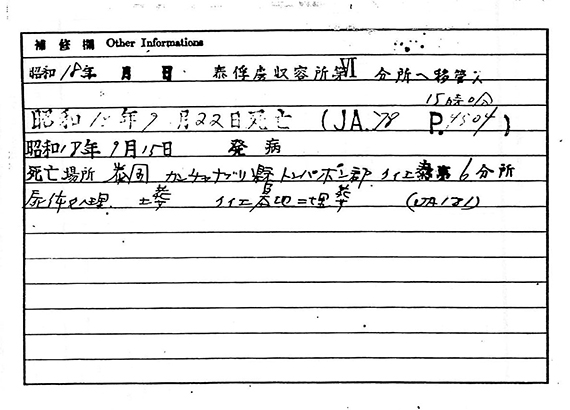 補修欄 Other Informations
昭和18年 月 日 泰俘虜収容所第VI分所へ移管ス
15時0分
昭和18年9月22日死亡 (JA.78 P.4504)
昭和18年9月15日 発病
死亡場所 泰国 カンチャナブリ縣トンパポン郡 クイエ 第6分所
屍体処理 土葬 クイエ墓地ニ埋葬 (JA121)